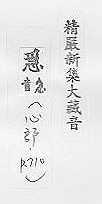 精嚴新集大藏音
音急
(心部.
p.710)